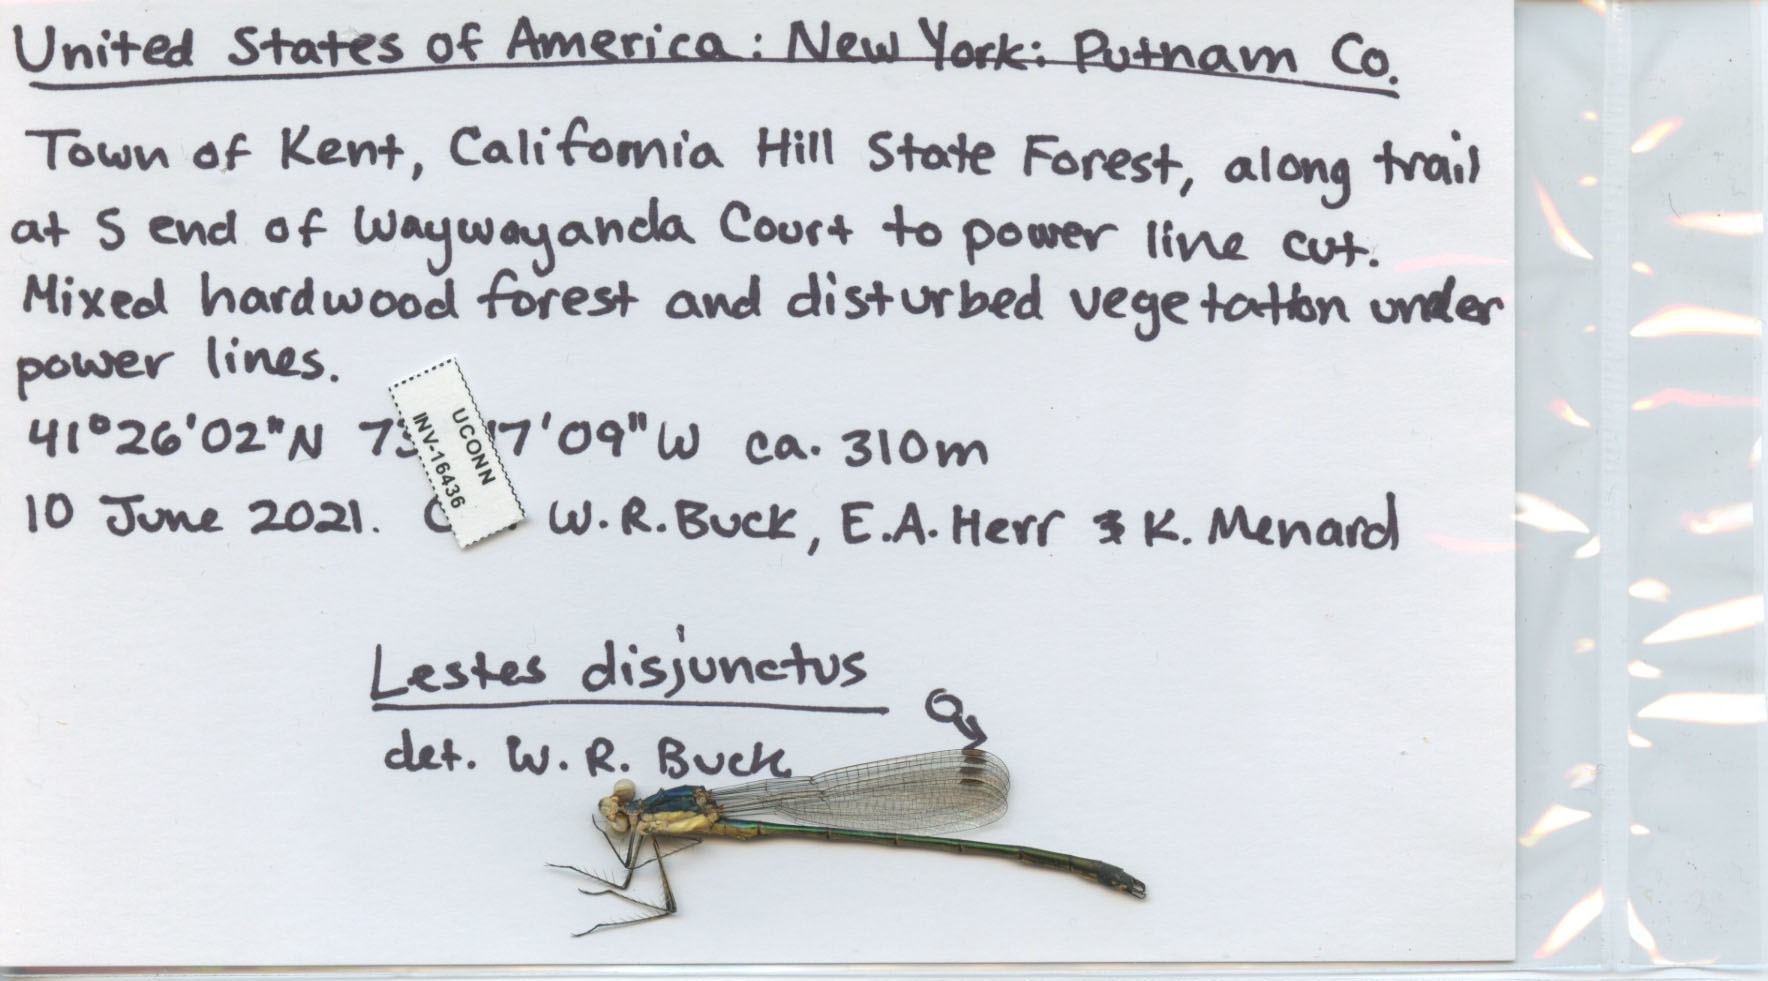 United States of America: New York: Putnam Co.
Town of Kent, California Hill State Forest, along trail
at S end of Waywayanda Court to power line cut.
Mixed hardwood forest and disturbed vegetation under
power lines.
41°26'02"N 73 7'09"W ca. 310m
10 June 2021. W.R. Buck, E.A. Herr & K. Menard
UCONN
INV-16436
Lestes disjunctus
det. W. R. Buck
♂